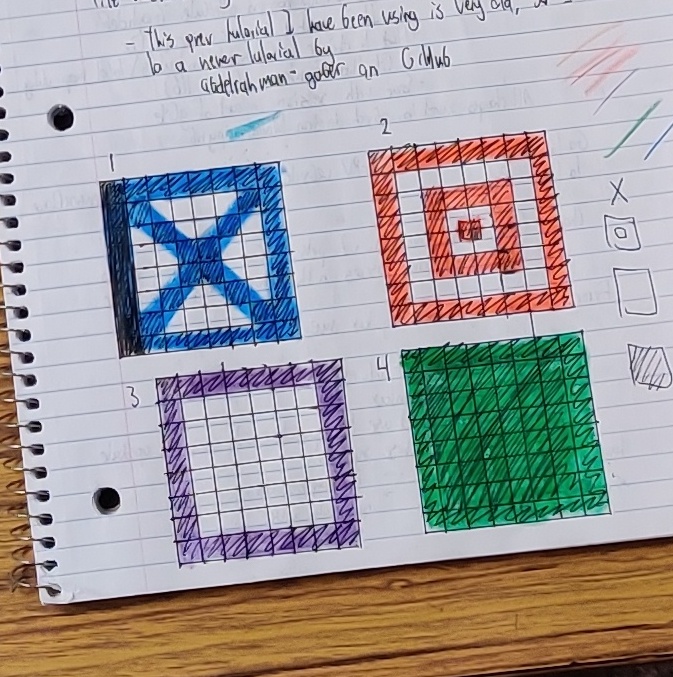 - This prev tutorial I have been using is very old,
to a newer tutorial by
abdelrahman-gaber on GitHub
1
2
3
4